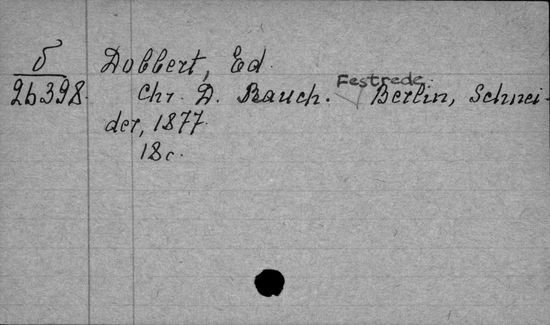 б Dobbert, Ed.
26398. Chr. D. Rauch. Festrede. Berlin, Schnei-
der, 1877.
18 с.